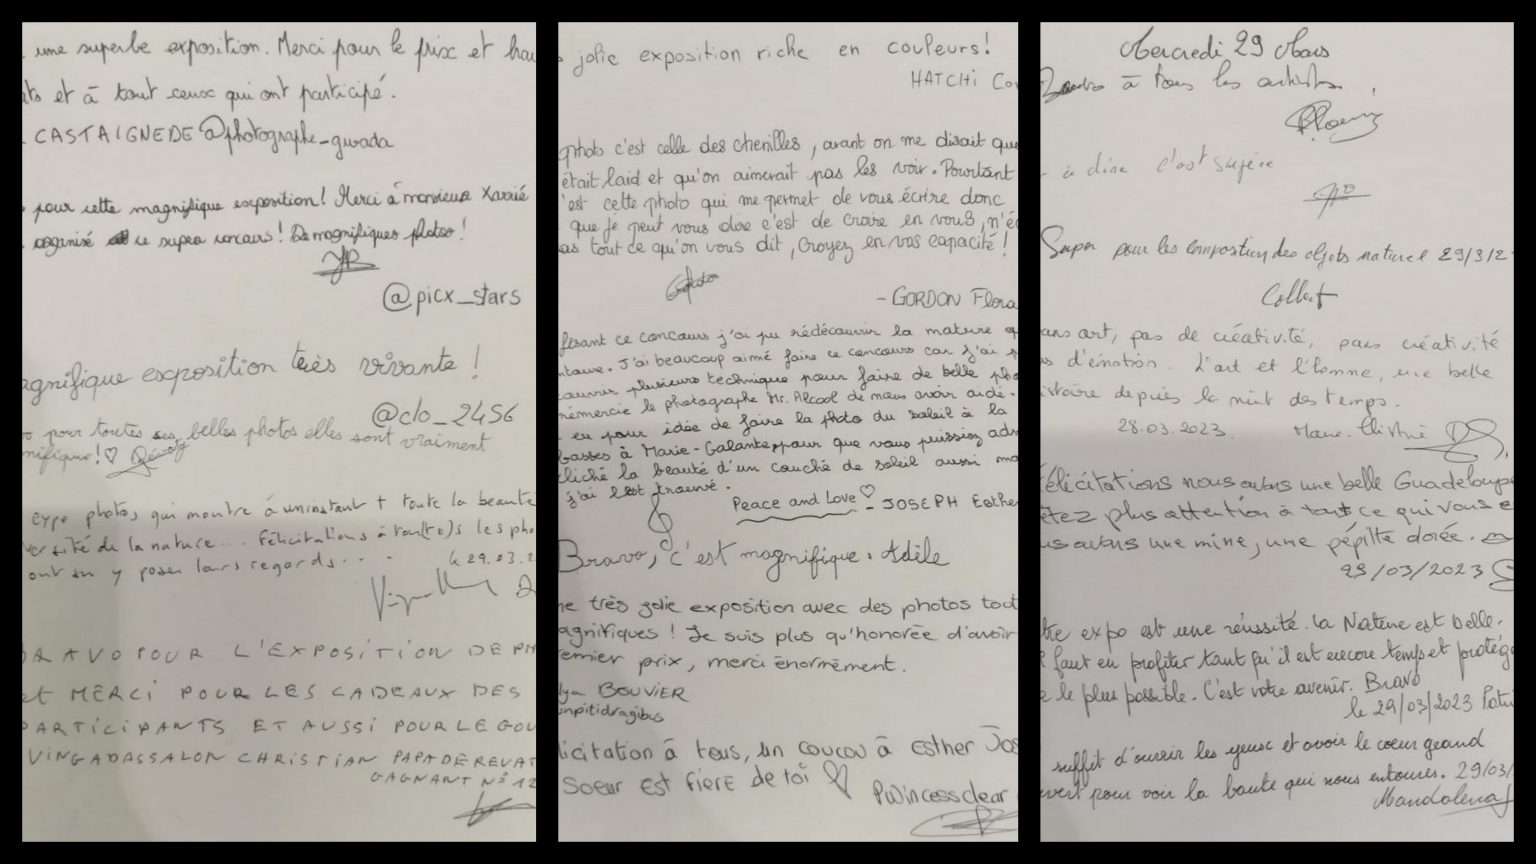 une superbe exposition. Merci pour le prix et
et à tout ceux qui ont participé.
CASTAIGNEDE @photographe_gwada
pour cette magnifique exposition! Merci à monsieur Xavié
organisé ce supra concurs! De magnifiques photos!
@picx_stars
agnifique exposition très vivante!
@clo_2456
pour toutes ses belles photos elles sont vraiment
nifique! ♡
expo photos, qui montre à un instant + toute la beauté
versité de la nature... Félicitations à tou(te)s les pho
ont su y poser leurs regards...
le 29.03.2
BRAVO POUR L'EXPOSITION DE PH
et MERCI POUR LES CADEAUX DES
PARTICIPANTS ET AUSSI POUR LE GOU
VINGADASSALON CHRISTIAN PAPA DE REVAT
GAGNANT N° 12
s jolie exposition riche en couleurs!
HATCHi Co
photo c'est celle des chenilles, avant on me disait que
était laid et qu'on aimerait pas les voir. Pourtant
'est cette photo qui me permet de vous écrire donc
que je peut vous dire c'est de croire en vous, n'éc
as tout ce qu'on vous dit, croyez en vos capacité!
- GORDON Flora
fesant ce concours j'ai pu rédécouvrir la nature q
ntaire. J'ai beaucoup aimé faire ce concours car j'ai p
couvrir plusieurs technique pour faire de belle pho
rémercie le photographe Mr. Alcool de nous avoir aidé.
eu pour idée de faire la photo du soleil à la
basses à Marie-Galante pour que vous puissiez adm
cliché la beauté d'un couché de soleil aussi ma
j'ai trouvé.
Peace and Love ♡ - JOSEPH Esther
Bravo, c'est magnifique. Adèle
ne très jolie exposition avec des photos tout
agnifiques! Je suis plus qu'honorée d'avoir
remier prix, merci énormément.
BOUVIER
unpitidragibus
licitation à tous, un coucou à Esther Jos
Soeur est fière de toi ♡
Pwincessclear
Mercredi 29 Mars
à tous les artistes
à dire c'est supère
Super pour les composition des objets naturel 29/3/2
Colbert
ans art, pas de créativité, pans créativité
s d'émotion. L'art et l'homme, une belle
istoire depuis la nuit des temps.
28.03.2023. Marie-Christine
élicitations nous avons une belle Guadeloupe
êtez plus attention à tout ce qui vous e
us avons une mine, une pépite dorée.
29/03/2023
tre expo est une réussite. La Nature est belle.
l faut en profiter tant qu'il est encore temps et protég
e le plus possible. C'est votre avenir. Bravo
le 29/03/2023 Patri
suffit d'ouvrir les yeux et avoir le coeur grand
uvert pour voir la bauté qui nous entoures. 29/03/
Mandolena